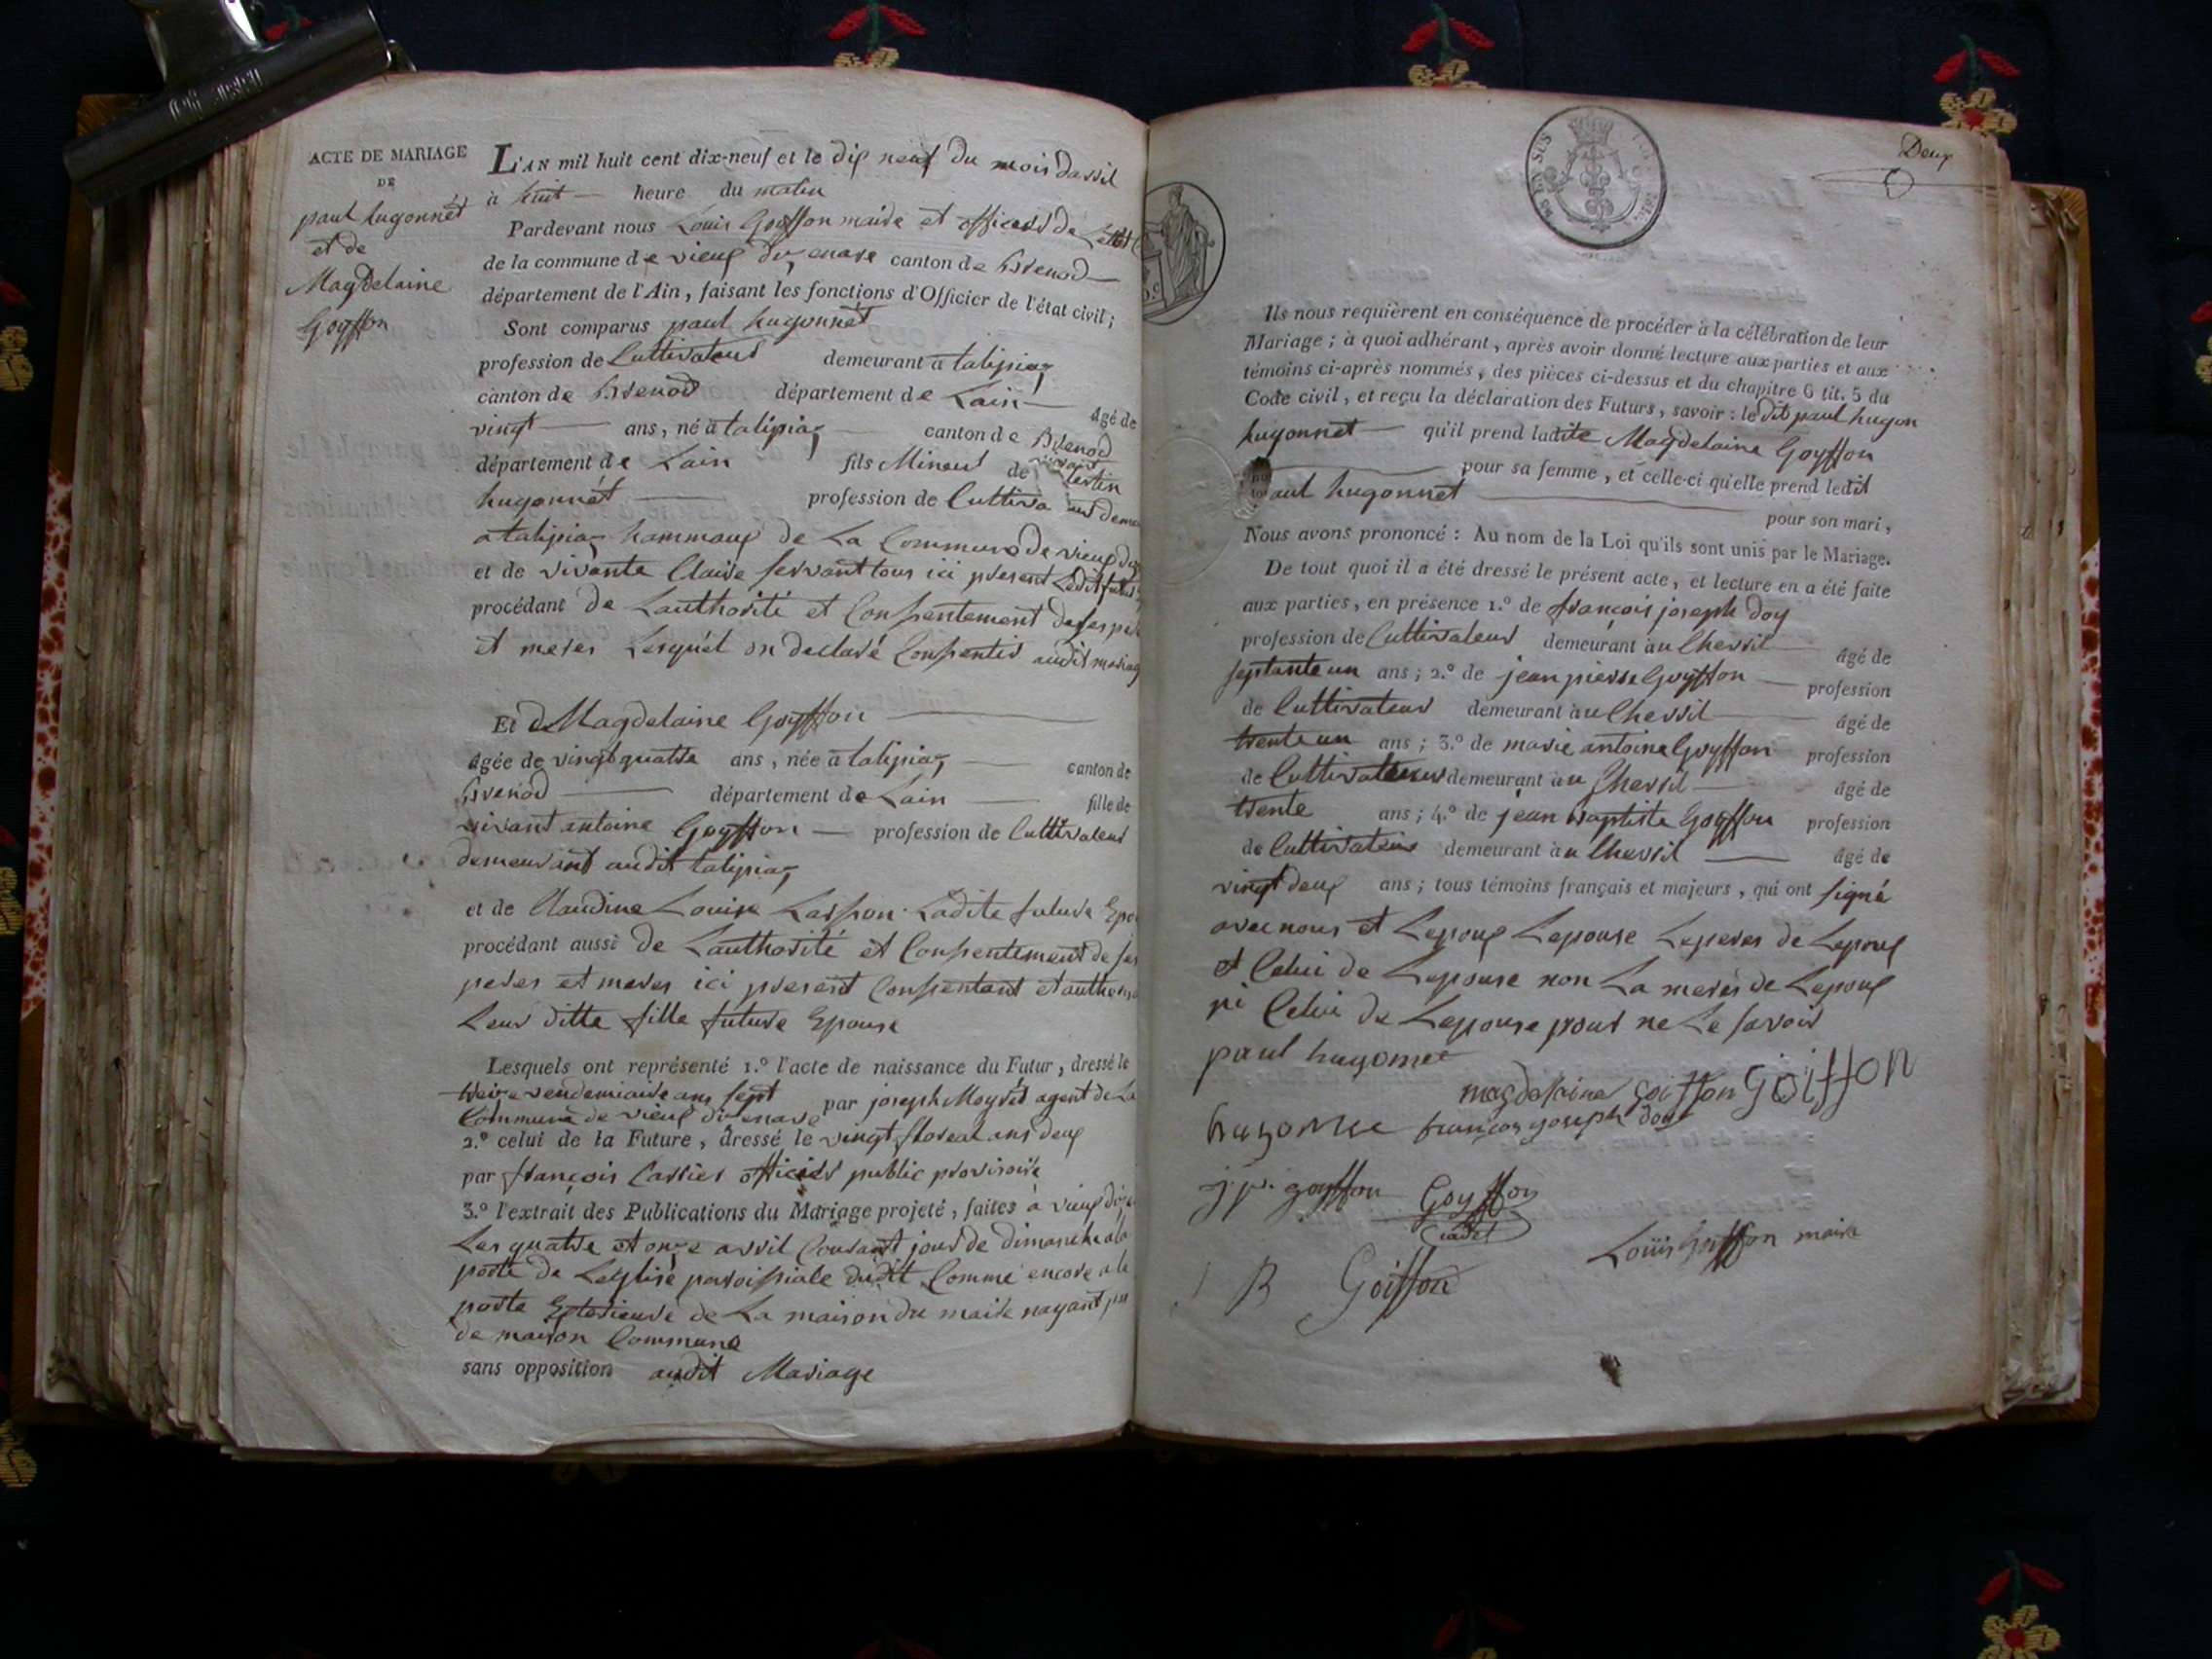 ACTE DE MARIAGE
DE
paul hugonnet
et de
Magdelaine
Goyffon
L'AN mil huit cent dix-neuf et le dix neuf du mois davril
à huit heure du matin
Pardevant nous Louis Goyffon maire et officier de
de la commune de vieux du, enare canton de Brenod
département de l'Ain, faisant les fonctions d'Officier de l'état civil;
Sont comparus paul hugonnet
profession de Cultivateur demeurant à talipiaz
canton de Brenod département de Lain âgé de
vingt ans, né à talipiaz canton de Brenod
département de Lain fils Mineur de vivant
hugonnet profession de Cultiva
a talipiaz hammaux de La Commune de vieux
et de vivante Claire servant tous ici present Ledit futur
procédant de Lauthorité et Consentement de ses
et meres Lesquel on declaré Consentir audit mariag
Et de Magdelaine Goyffon
âgée de vingt quatre ans, née à talipiaz canton de
Brenod département de Lain fille de
vivant antoine Goyffon profession de Cultivateur
demeurant audit talipiaz
et de Claudine Louise Ladite future
procédant aussi de Lauthorité et Consentement de
peres et meres ici present Consentant et
Leur ditte fille future Epouse
Lesquels ont représenté 1.º l'acte de naissance du Futur, dressé le
vendemiaire an sept par joseph agent de La
Commune de vieux
2.º celui de la Future, dressé le vingt floreal ans deux
par françois Carrier officier public provisoire
3.º l'extrait des Publications du Mariage projeté, faites à vieux
Les quatre et onze avril Courant jour de dimanche a la
porte de Leglise paroissiale dudit Comme encore a la
porte Exterieure de La maison du maire nayant
de maison Commune
sans opposition audit Mariage
Deux
Ils nous requièrent en conséquence de procéder à la célébration de leur
Mariage; à quoi adhérant, après avoir donné lecture aux parties et aux
témoins ci-après nommés, des pièces ci-dessus et du chapitre 6 tit. 5 du
Code civil, et reçu la déclaration des Futurs, savoir: le dit paul hugon
hugonnet qu'il prend ladite Magdelaine Goyffon
pour sa femme, et celle-ci qu'elle prend ledit
aul hugonnet
pour son mari,
Nous avons prononcé: Au nom de la Loi qu'ils sont unis par le Mariage.
De tout quoi il a été dressé le présent acte, et lecture en a été faite
aux parties, en présence 1.º de françois joseph doy
profession de Cultivateur demeurant à u Chevril âgé de
septante un ans; 2.º de jean pierre Goyffon profession
de Cultivateur demeurant à u Chevril âgé de
trente un ans; 3.º de marie antoine Goyffon profession
de Cultivateur demeurant à u Chevril âgé de
trente ans; 4.º de jean baptiste Goyffon profession
de Cultivateur demeurant à u Chevril âgé de
vingt deux ans; tous témoins français et majeurs, qui ont signé
avec nous et Lepoux Lepouse Leperes de Lepoux
et Celui de Lepouse non La meres de Lepoux
ni Celui de Lepouse pour ne Le savoir
paul hugonnet
magdelaine goiffon goiffon
hugonnet françois joseph
j. p. goyffon Goyffon
Cadet
Louis Goyffon maire
J B Goiffon